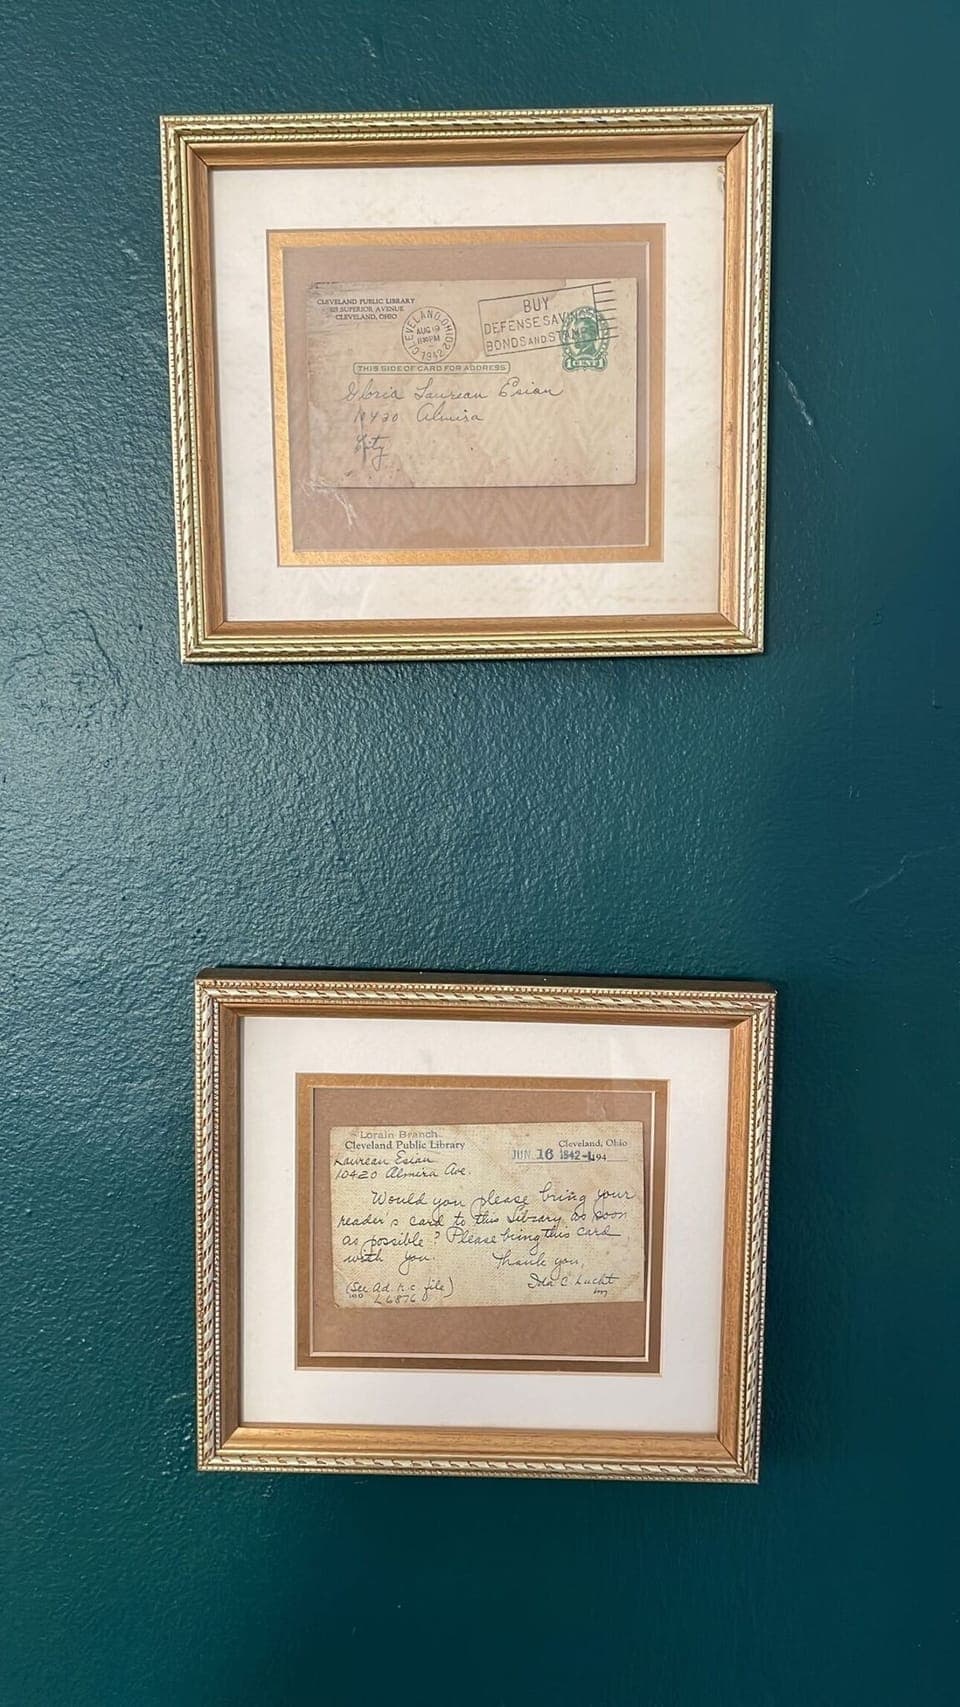 CLEVELAND PUBLIC LIBRARY
325 SUPERIOR AVENUE
CLEVELAND, OHIO
CLEVELAND, OHIO
AUG 19
1942
BUY
DEFENSE SAVINGS
BONDS AND STAMPS
1 CENT
THIS SIDE OF CARD FOR ADDRESS
Gloria Laurean Esian
10420 Almira
City
Lorain Branch
Cleveland Public Library
Cleveland, Ohio
JUN 16 1942 194
Laurean Esian
10420 Almira Ave.
Would you please bring your
reader's card to this Library as soon
as possible? Please bring this card
with you. Thank you,
Ida C. Lucht
(See Ad. r.c. file)
L6876